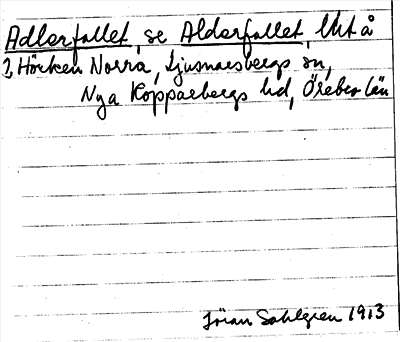 Adlerfallet, se Alderfallet,
Hörken Norra, Ljusnarsbergs sn,
Nya Kopparbergs hd, Örebro län
Jöran Sahlgren 1913